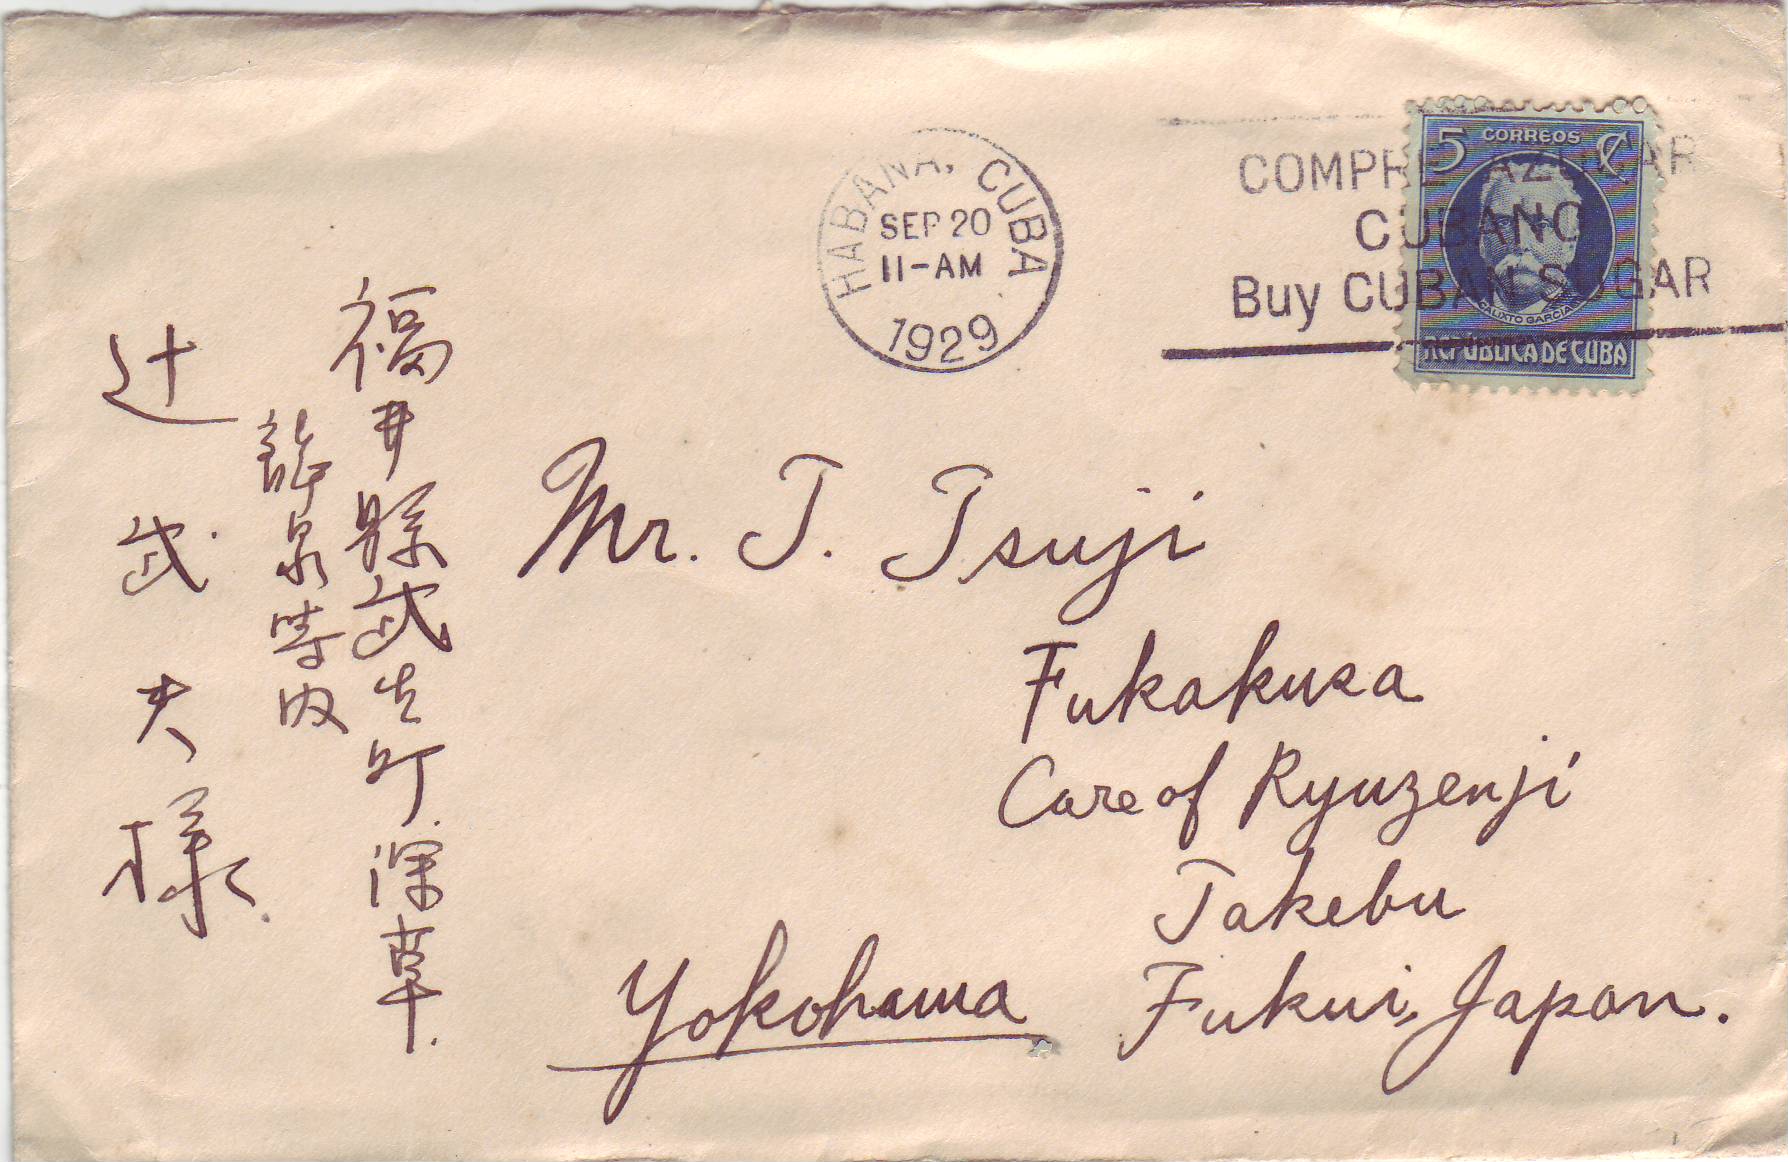 HABANA, CUBA
SEP 20
11-AM
1929
COMPRE AZUCAR
CUBANO
Buy CUBAN SUGAR
5 CORREOS ¢
CALIXTO GARCIA
REPUBLICA DE CUBA
福井縣武生町深草
龍泉寺内
辻武夫様
Mr. T. Tsuji
Fukakusa
Care of Ryuzenji
Takebu
Fukui, Japan.
Yokohama